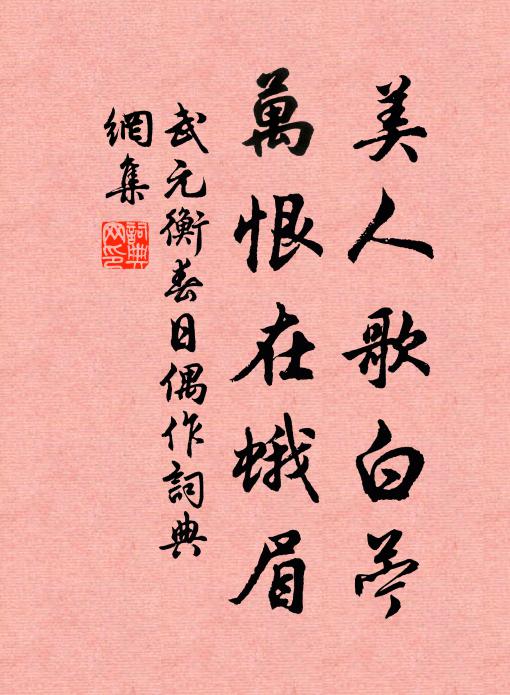 美人歌白苧
萬恨在蛾眉
武元衡春日偶作詞典
網集
詞典網印